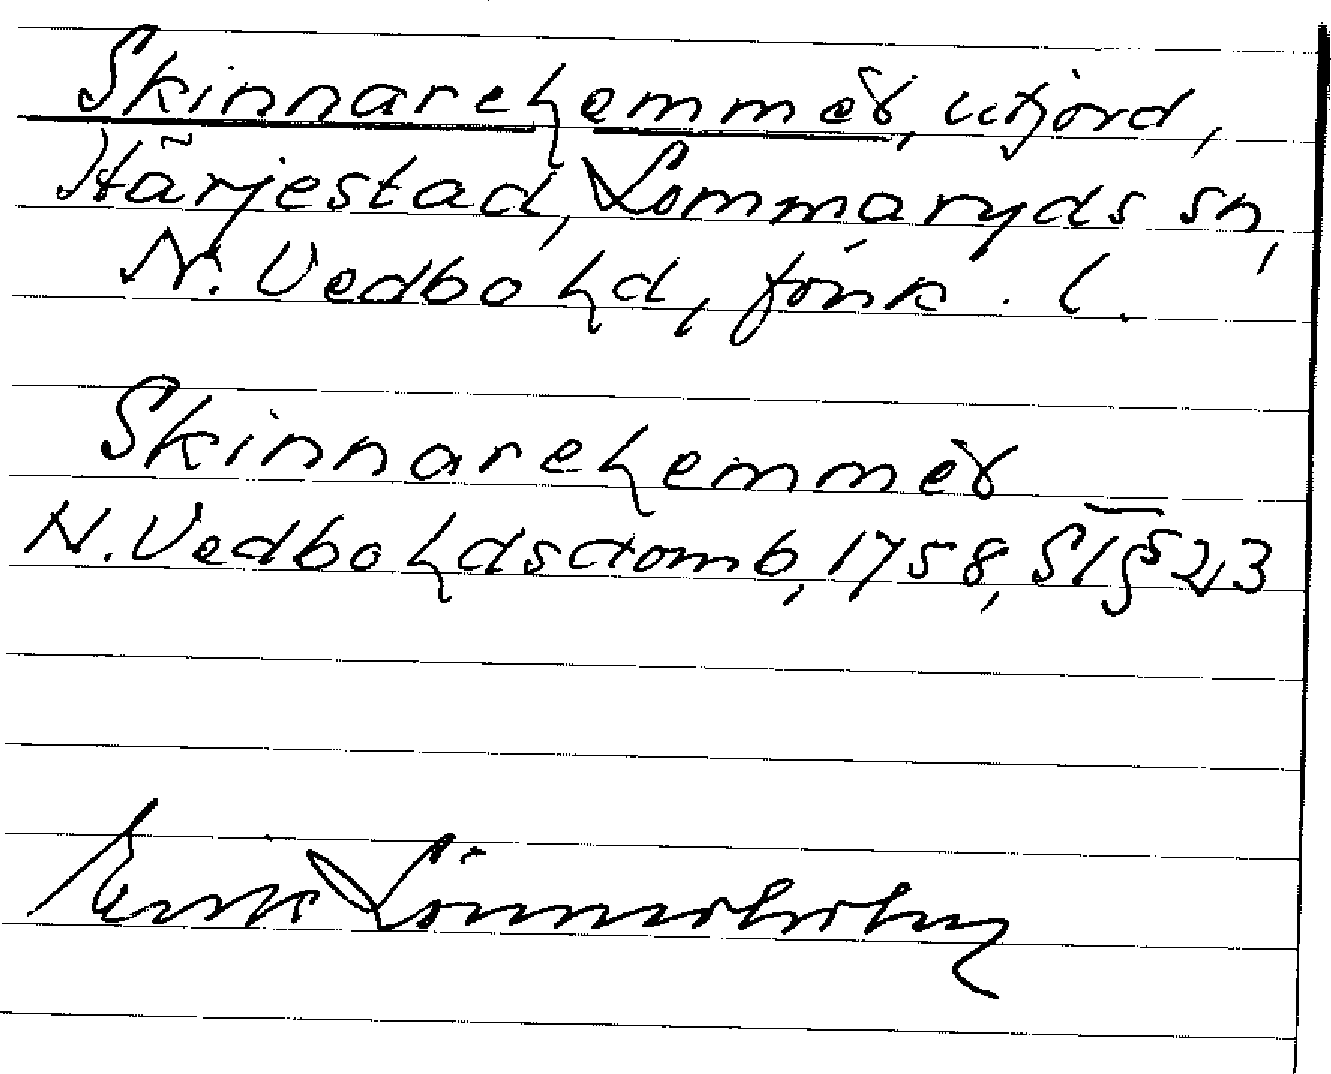 Skinnarehemmet, utjord,
Härjestad, Lommaryds sn,
N. Vedbo hd, Jönk. l.
Skinnarehemmet
N. Vedbo hds domb, 1758, S1 § 23
Erik Lönnerholm